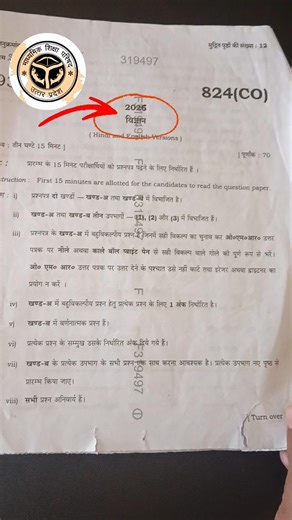 माध्यमिक शिक्षा परिषद्
उत्तर प्रदेश
मुद्रित पृष्ठों की संख्या : 12
319497
824(CO)
2026
विज्ञान
( Hindi and English Versions )
तीन घण्टे 15 मिनट ]
[ पूर्णांक : 70
प्रारम्भ के 15 मिनट परीक्षार्थियों को प्रश्नपत्र पढ़ने के लिए निर्धारित हैं ।
First 15 minutes are allotted for the candidates to read the question paper.
i) प्रश्नपत्र दो खण्डों — खण्ड-अ तथा खण्ड-ब में विभाजित है।
ii) खण्ड-अ तथा खण्ड-ब तीन उपभागों — (1), (2) और (3) में विभाजित हैं।
iii) प्रश्नपत्र के खण्ड-अ में बहुविकल्पीय प्रश्न हैं जिनमें सही विकल्प का चुनाव कर ओ०एम०आर० उत्तर
पत्रक पर नीले अथवा काले बॉल प्वाइंट पेन से सही विकल्प वाले गोले को पूर्ण रूप से भरें।
ओ० एम० आर० उत्तर पत्रक पर उत्तर देने के पश्चात उसे नहीं काटें तथा इरेजर अथवा ह्वाइटनर का
प्रयोग न करें ।
iv) खण्ड-अ में बहुविकल्पीय प्रश्न हेतु प्रत्येक प्रश्न के लिए 1 अंक निर्धारित है।
v) खण्ड-ब में वर्णनात्मक प्रश्न हैं।
vi) प्रत्येक प्रश्न के सम्मुख उसके निर्धारित अंक दिये गये हैं।
vii) खण्ड-ब के प्रत्येक उपभाग के सभी प्रश्न एक साथ करना आवश्यक है। प्रत्येक उपभाग नए पृष्ठ से
प्रारम्भ किया जाए।
viii) सभी प्रश्न अनिवार्य हैं।
319497
( Turn over